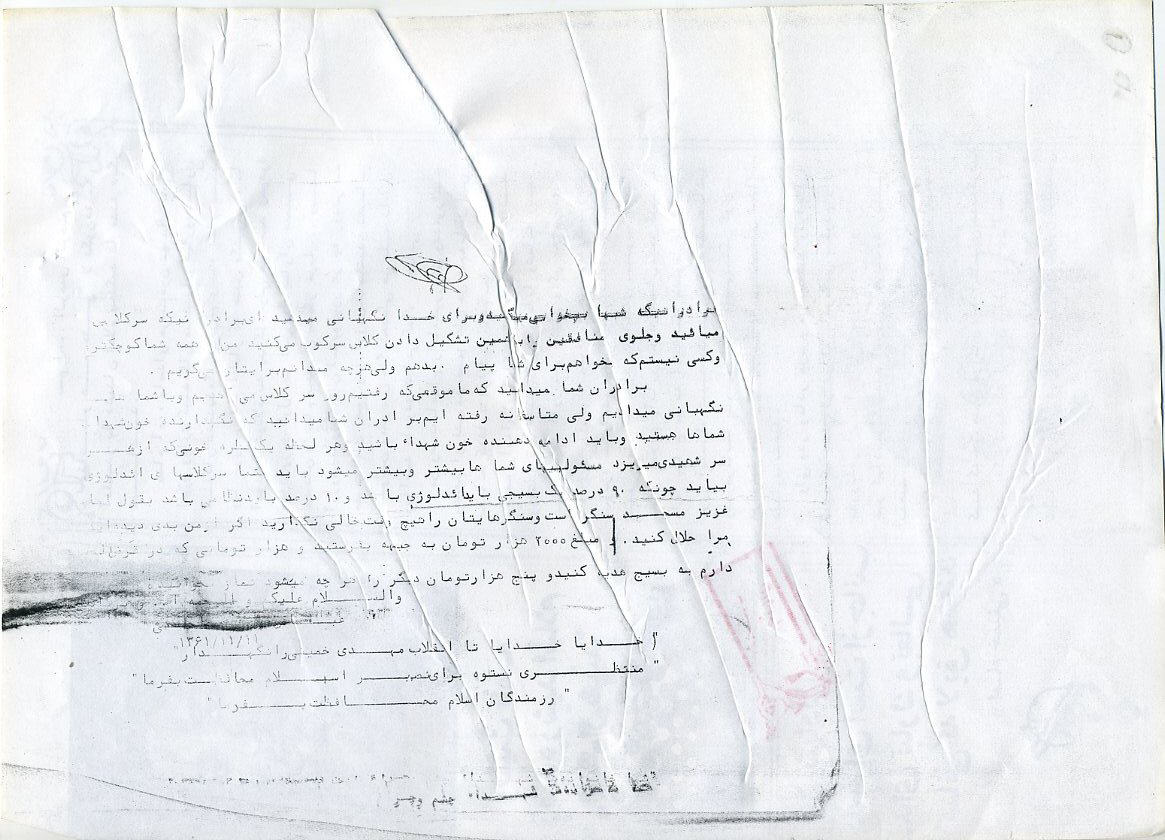 برادرانیکه شبها بیخوابی میکشید وبرای خدا نگهبانی میدهید ای برادرانیکه سرکلاس
میائید وجلوی منافقین را با همین تشکیل دادن کلاس سرکوب می‌کنید من از همه شما کوچکتر
وکسی نیستم که بخواهم برای شما پیام بدهم ولی هرچه میدانم برایتان می‌گویم .
برادران شما میدانید که ما موقعی‌که رفتیم روز سر کلاس می وباشما
نگهبانی میدادیم ولی متاسفانه رفته ایم برادران شما میدانید که نگهدارنده خون شهدا
شماها هستید وباید ادامه دهنده خون شهداء باشید وهر لحظه یک قطره خونی‌که از هر
سر شهیدی میریزد مسئولیتهای شما ها بیشتر وبیشتر میشود باید شما سرکلاسهای ائدلوژی
بیاید چونکه ۹۰ درصد یک بسیجی باید ائدلوژی با شد و ۱۰ درصد باید نظامی باشد بقول امام
عزیز مسجد سنگر است وسنگرهایتان را هیچ وقت خالی نگذارید اگر از من بدی دیده‌اید
مرا حلال کنید . مبلغ ۲۰۰۰ هزار تومان به جبهه بفرستید و هزار تومانی که در
دارم به بسیج هدیه کنید و پنج هزارتومان دیگر را هر چه میشود نماز
والسلام علیکم و
۱۳۶۱/۱۱/۱۱
" خدایا خدایا تا انقلاب مهدی خمینی را نگهدار "
" منتظری نستوه برای نصر اسلام محافظت بفرما "
" رزمندگان اسلام محافظت بفرما "
شهدا چشم و چر